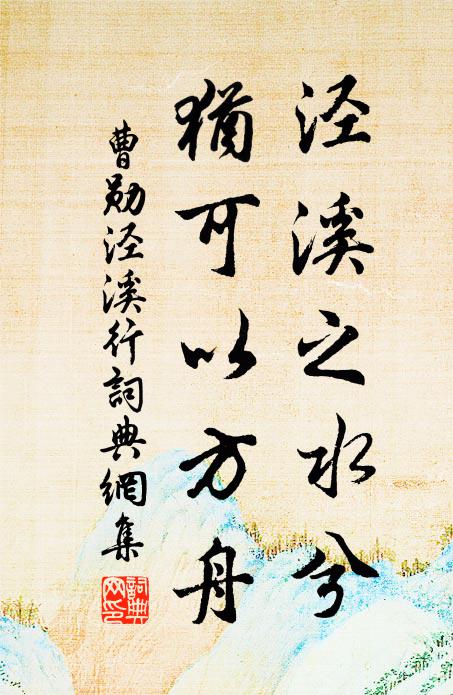 泾溪之水兮
猶可以方舟
曹勛泾溪行詞典網集
詞典网印